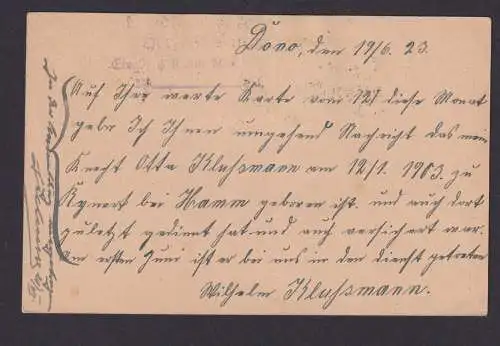 Dono, den 19/6. 23.
Auf Ihre werte Karte vom 12/ diese Monat
gebe Ich Ihnen umgehend Nachricht das mein
Knecht Otto Klussmann am 12/1. 1903. zu
Rynort bei Hamm geboren ist. und auch dort
zuletzt gedient hat und auch versichert war.
Am ersten Juni ist er bei uns in den dienst getreten
Wilhelm Klussmann.